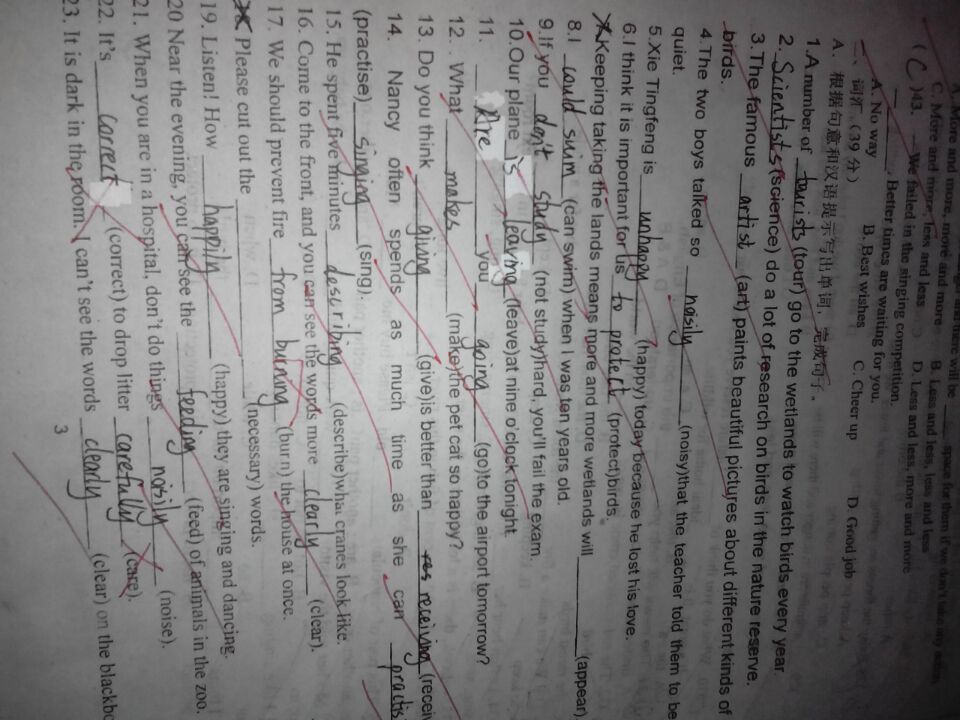 A. More and more, more and more B. Less and less, less and less
C. More and more, less and less D. Less and less, more and more
( C )43. —We failed in the singing competition.
—______. Better times are waiting for you.
A. No way B. Best wishes C. Cheer up D. Good job
二、词汇。(39 分)
A. 根据句意和汉语提示写出单词，完成句子。
1.A number of tourists (tour) go to the wetlands to watch birds every year.
2. Scientists (science) do a lot of research on birds in the nature reserve.
3.The famous artist (art) paints beautiful pictures about different kinds of
birds.
4.The two boys talked so noisily (noisy)that the teacher told them to be
quiet.
5.Xie Tingfeng is unhappy (happy) today because he lost his love.
6.I think it is important for us to protect (protect)birds.
7.Keeping taking the lands means more and more wetlands will ______(appear)
8.I could swim (can swim) when I was ten years old.
9.If you don't study (not study)hard, you'll fail the exam.
10.Our plane is leaving (leave)at nine o'clock tonight.
11. Are you going (go)to the airport tomorrow?
12. . What makes (make)the pet cat so happy?
13. Do you think giving (give)is better than receiving (recei
14. Nancy often spends as much time as she can practis
(practise) singing (sing).
15. He spent five minutes describing (describe)what cranes look like.
16. Come to the front, and you can see the words more clearly (clear).
17. We should prevent fire from burning (burn) the house at once.
Please cut out the ______(necessary) words.
19. Listen! How happily (happy) they are singing and dancing.
20 Near the evening, you can see the feeding (feed) of animals in the zoo.
21. When you are in a hospital, don't do things noisily (noise).
22. It's correct (correct) to drop litter carefully (care).
23. It is dark in the room. I can't see the words clearly (clear) on the blackbo
3